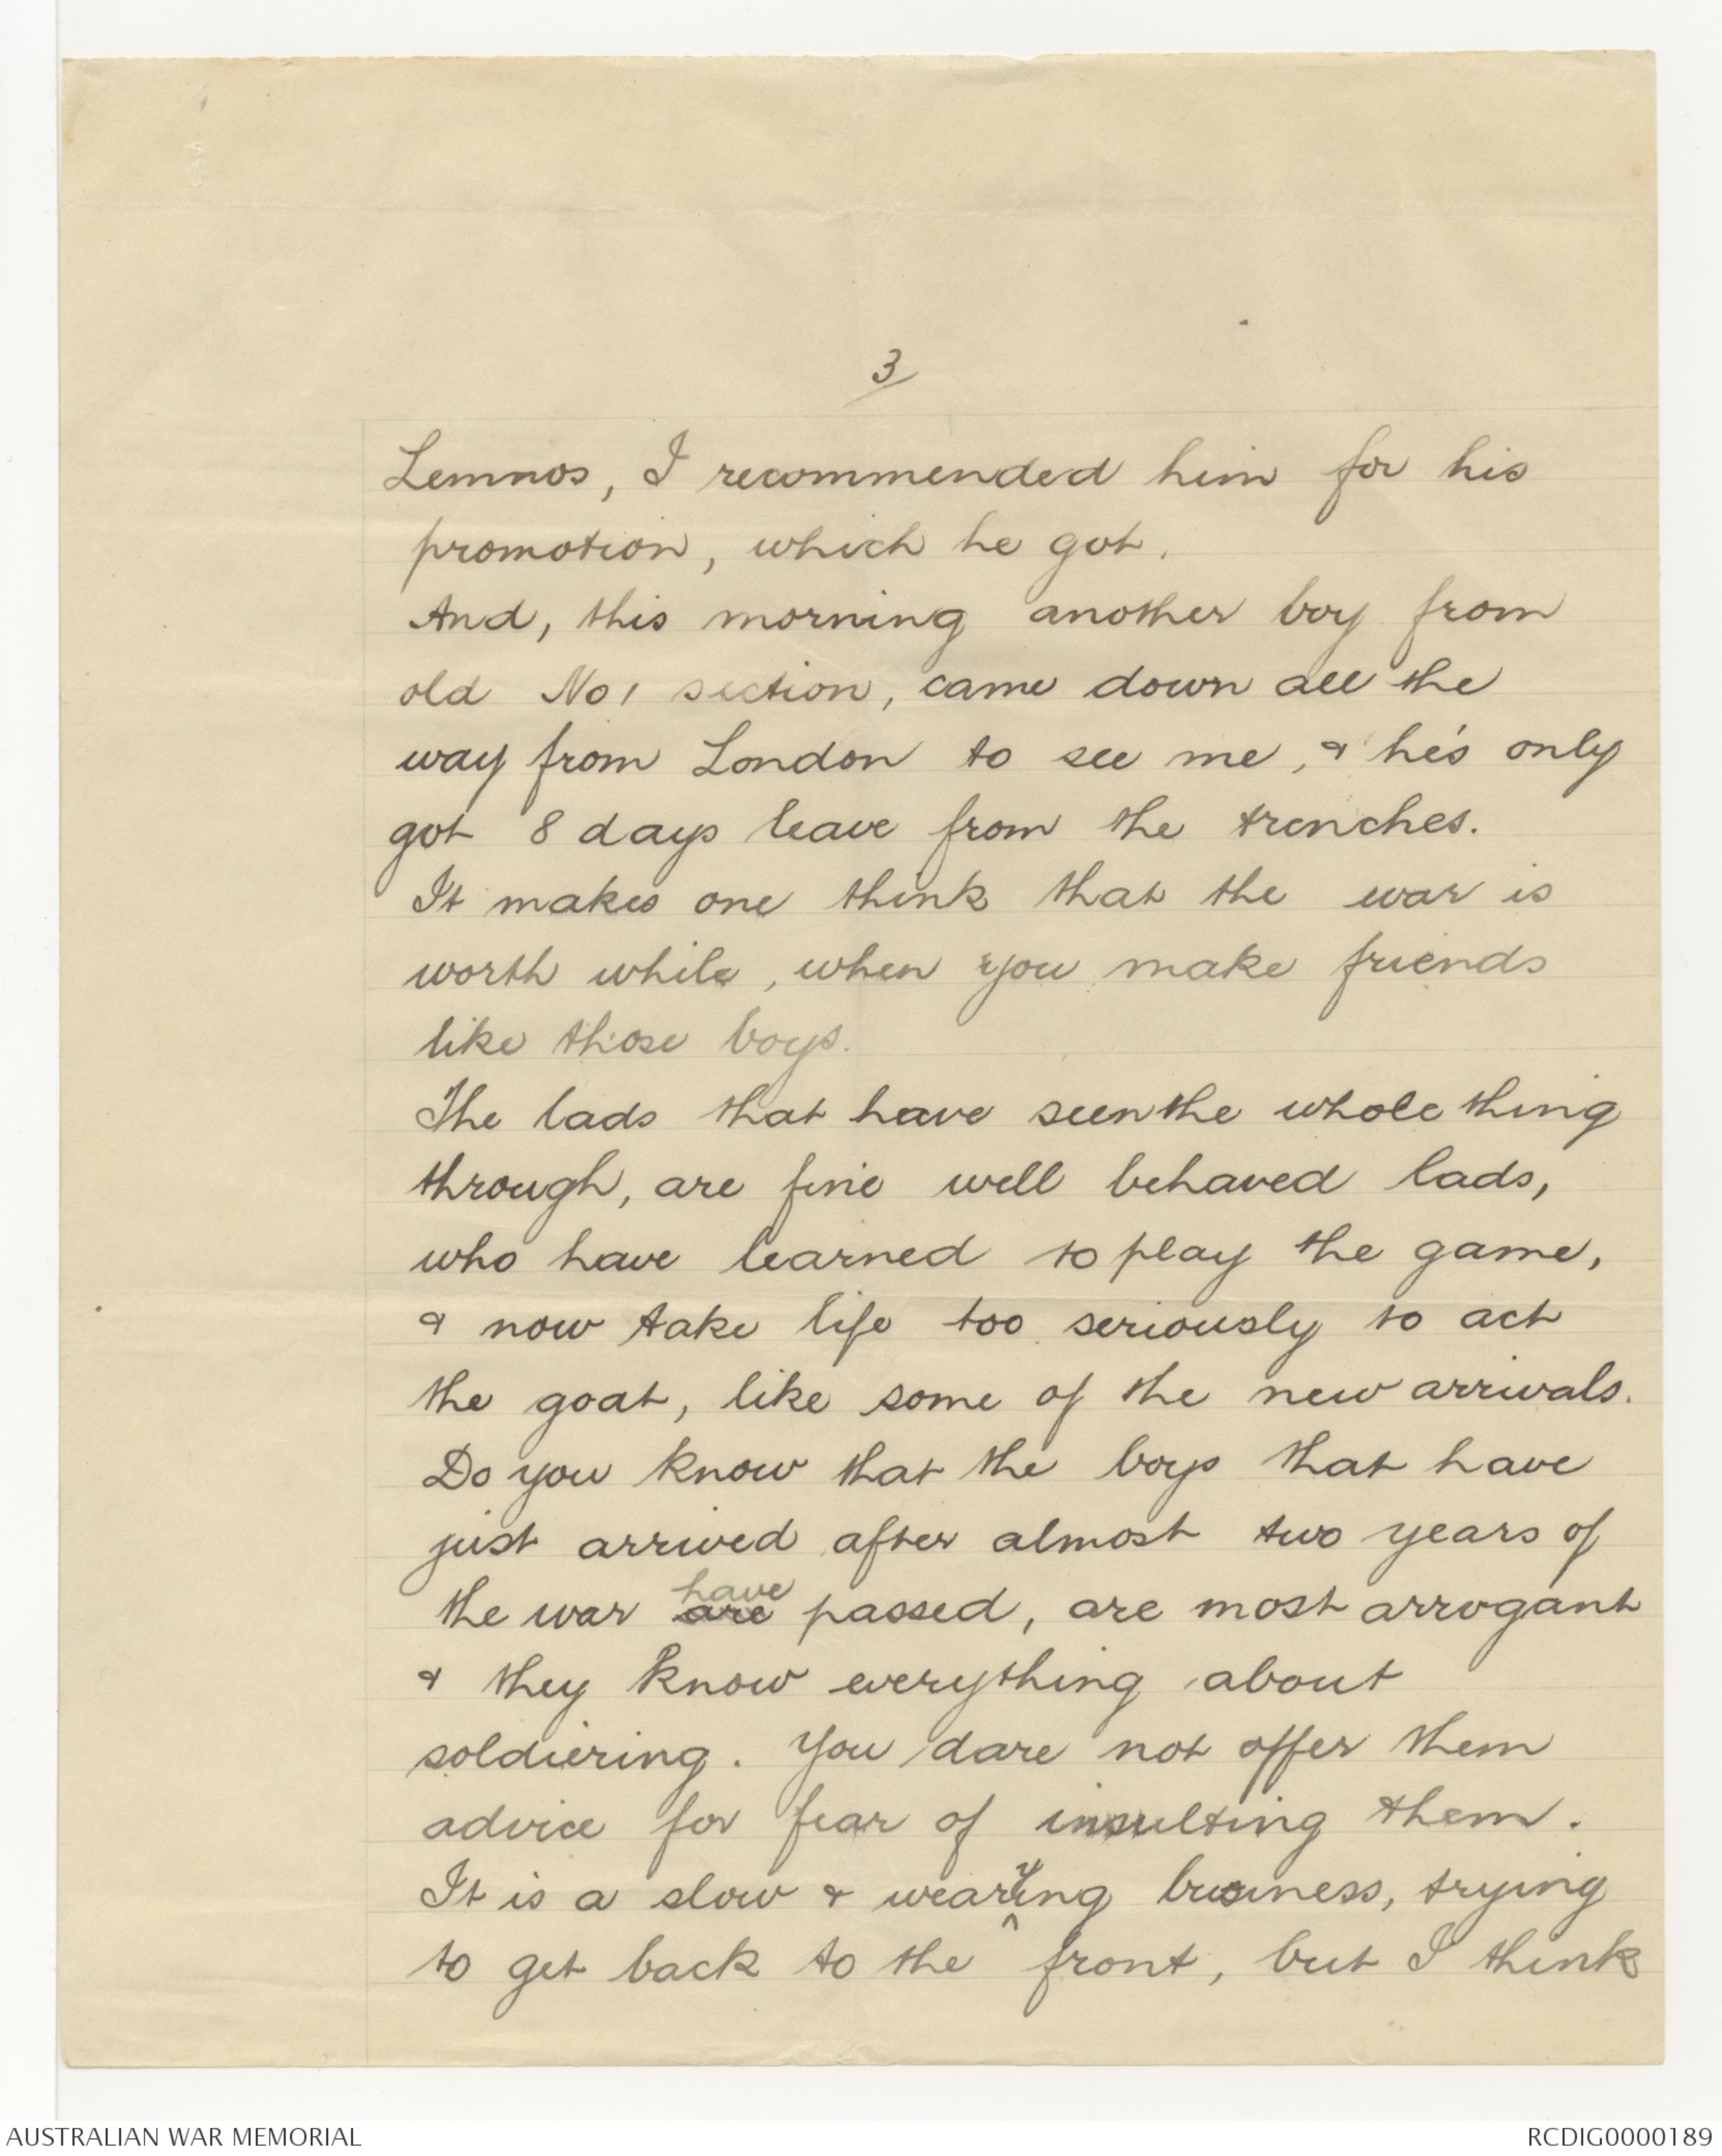 3/
Lemnos, I recommended him for his
promotion, which he got.
And, this morning another boy from
old No 1 section, came down all the
way from London to see me, & he's only
got 8 days leave from the trenches.
It makes one think that the war is
worth while, when you make friends
like those boys.
The lads that have seen the whole thing
through, are fine well behaved lads,
who have learned to play the game,
& now take life too seriously to act
the goat, like some of the new arrivals.
Do you know that the boys that have
just arrived after almost two years of
have
the war are passed, are most arrogant
& they know everything about
soldiering. You dare not offer them
advice for fear of insulting them.
y
It is a slow & wearing business, trying
^
to get back to the front, but I think
AUSTRALIAN WAR MEMORIAL
RCDIG0000189